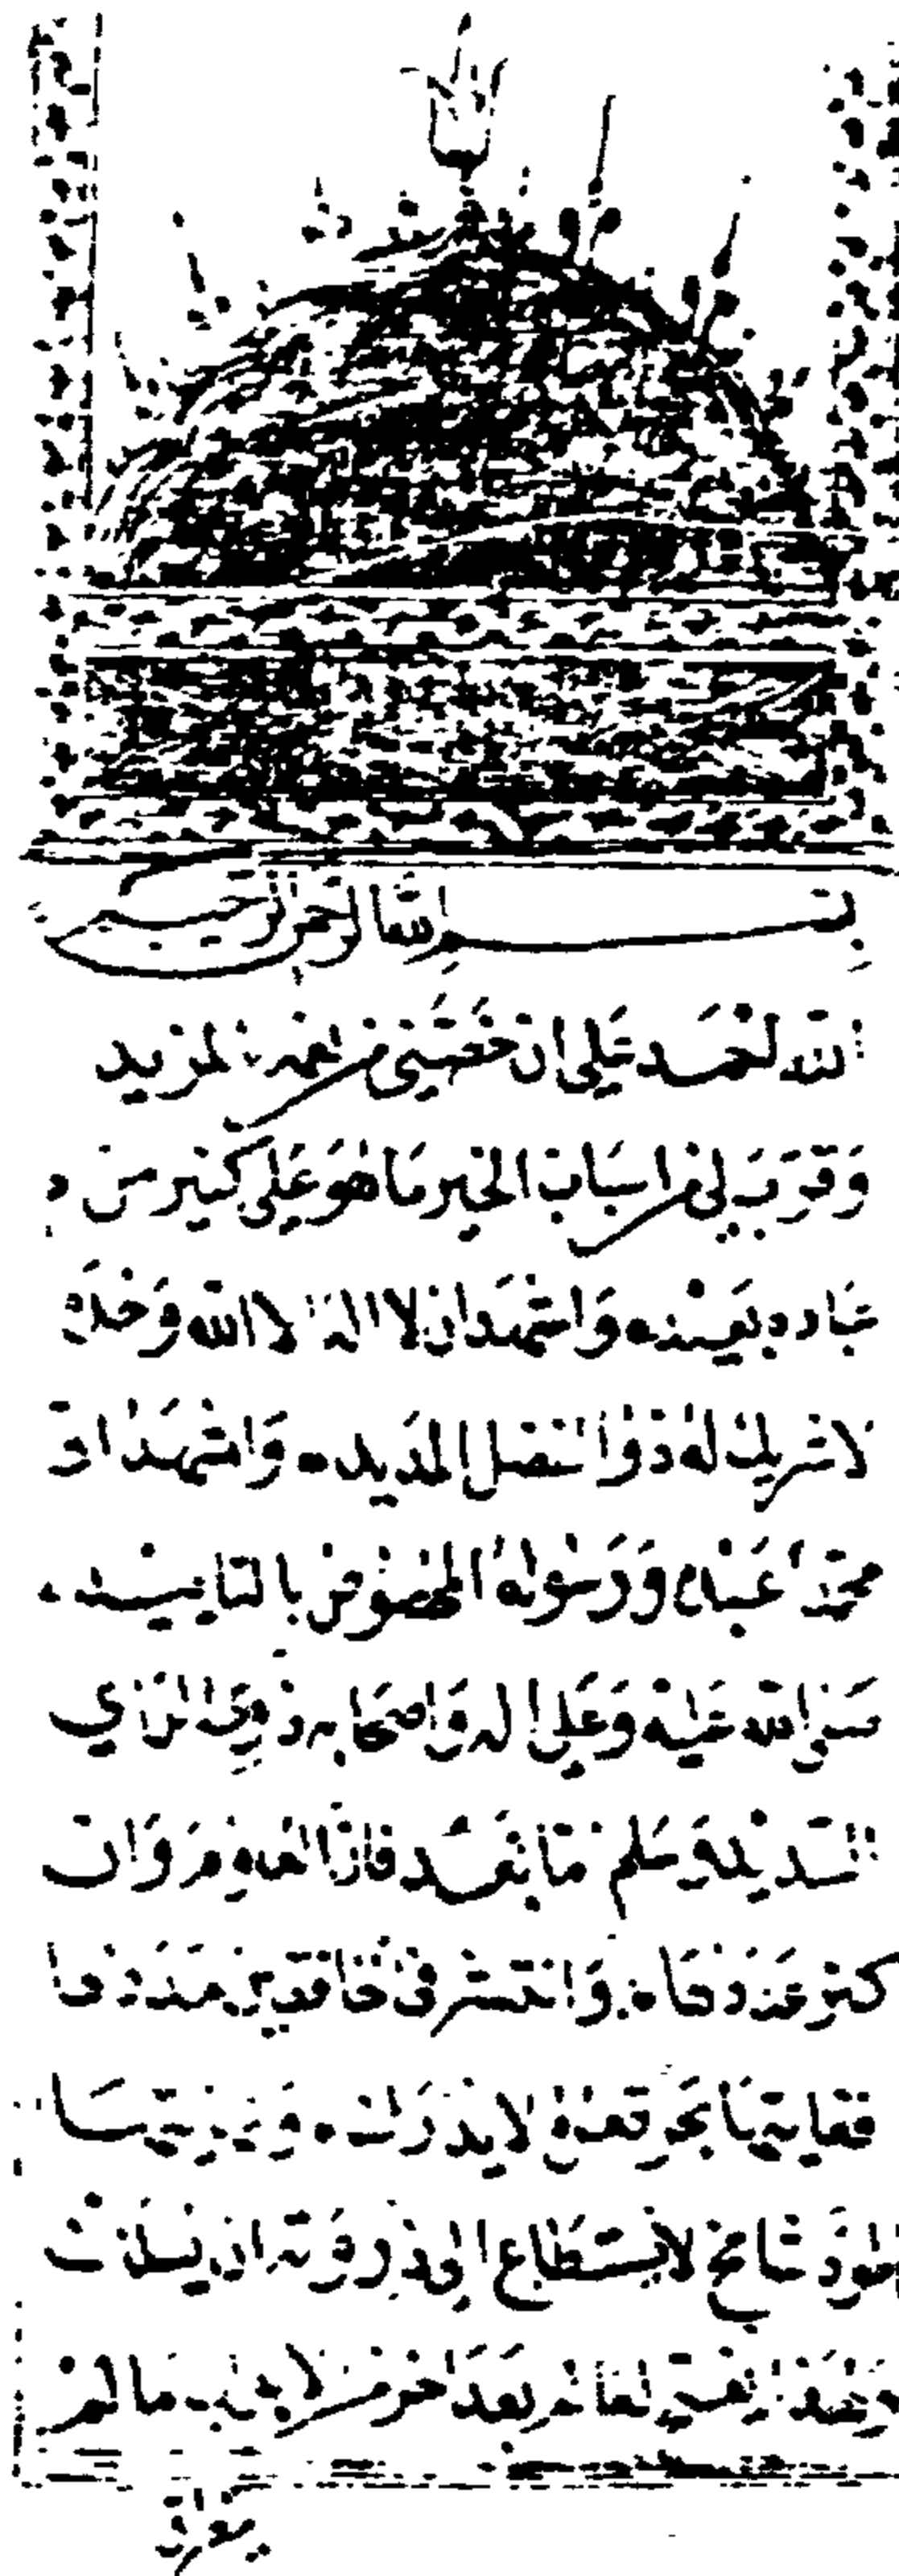 بسم الله الرحمن الرحيم
الله احمد على ان خصني من نعمه بالمزيد
وقرب لي من اسباب الخير ما هو على كثير من
عباده بعيد واشهد ان لا اله الا الله وحده
لا شريك له ذو الفضل المديد واشهد ان
محمدا عبده ورسوله المخصوص بالتاييد
صلى الله عليه وعلى اله واصحابه ذوي الراي
السديد وسلم اما بعد فان العلوم وان
كثر عددها وانتشر في الخافقين مددها
فغايتها بحر قعره لا يدرك ونهايتها
طود شامخ لا يستطاع الى ذروته ان يسلك
ولهذا يفتح لعالم بعد اخر من الابواب ما لم
يتطرق